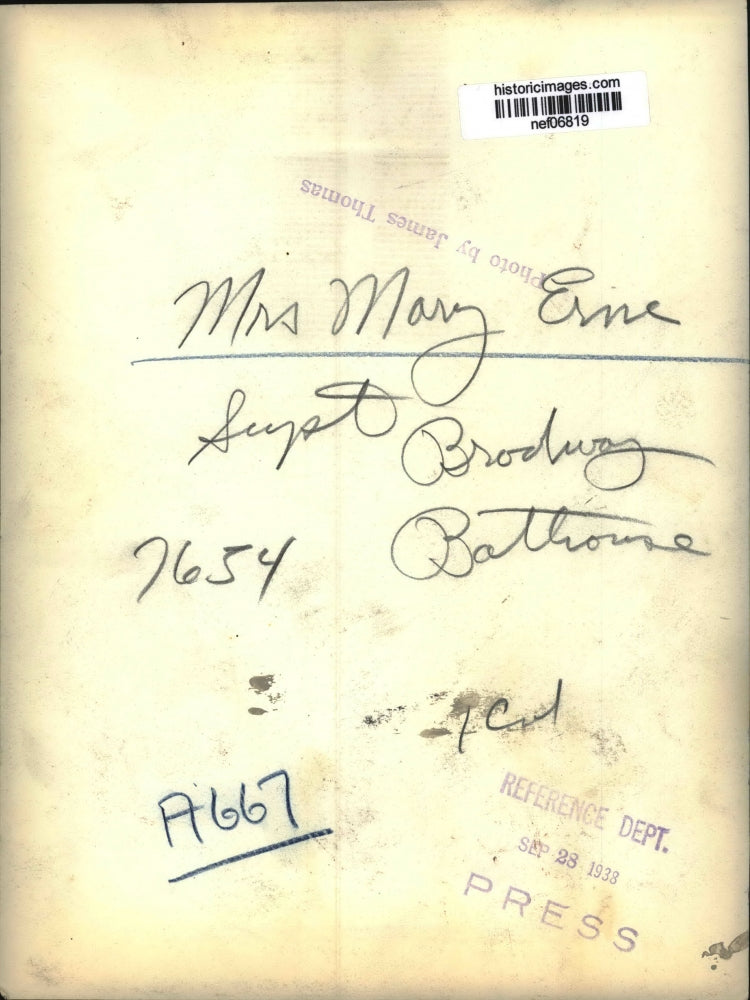 historicimages.com
nef06819
Photo by James Thomas
Mrs Mary Erne
Supt Brodway
Bathouse
7654
1 Col
A667
REFERENCE DEPT.
SEP 28 1938
PRESS